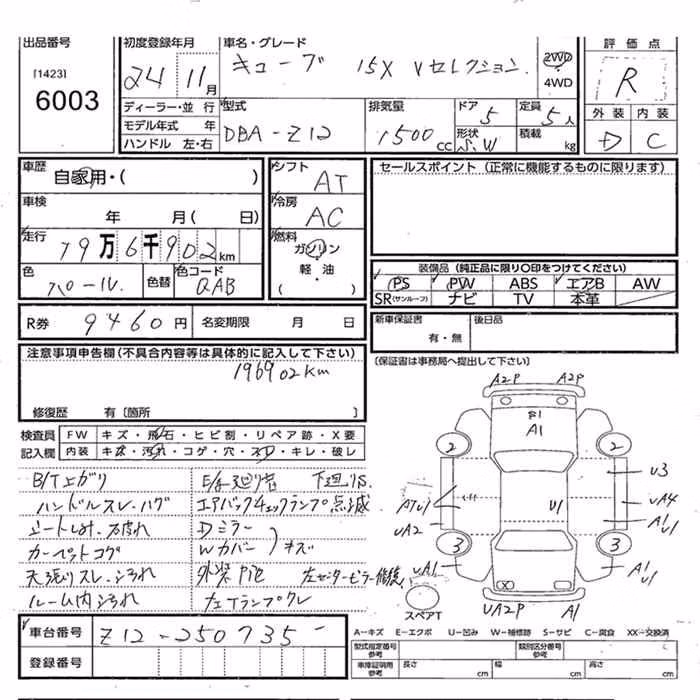 出品番号 初度登録年月 車名・グレード 評価点
[1423] 6003 24年11月 キューブ 15X Vセレクション. 2WD・4WD R
ディーラー・並行 型式 排気量 ドア 定員 外装 内装
モデル年式 年 DBA-Z12 1500cc 5 5人 D C
ハンドル 左・右 形状 S.W 積載 kg
車歴 自家用・( ) シフト AT セールスポイント(正常に機能するものに限ります)
車検 年 月( 日) 冷房 AC
走行 19万6千902km 燃料 ガソリン・軽油・( )
装備品(純正品に限り○印をつけてください)
色 パール. 色替 色コード QAB PS PW ABS エアB AW
SR(サンルーフ) ナビ TV 本革
R券 9460円 名変期限 月 日 新車保証書 有・無 後日品
注意事項申告欄(不具合内容等は具体的に記入して下さい) (保証書は事務局へ提出して下さい)
196902km
修復歴 有〔箇所 〕
検査員 FW キズ・飛石・ヒビ割・リペア跡・X要
記入欄 内装 キズ・汚れ・コゲ・穴・スレ・キレ・破レ
B/T上がり 下廻りS
ハンドルスレ.ハゲ エアバックチェックランプ点滅
Dミラー
カーペットコゲ Wカバー キズ
天張りスレ.汚れ 左センターピラー修復
ルーム内汚れ
A2P A2P
B1
A1
2 2
U3
U1 UA4
UA2 A1 U1
3 3
UA1 A1 U1
X
スペアT UA2P A1
車台番号 Z12-250735
A－キズ E－エクボ U－凹み W－補修跡 S－サビ C－腐食 XX－交換済
登録番号 型式指定番号 参考 類別区分番号 参考
車庫証明用 参考 長さ cm 幅 cm 高さ cm